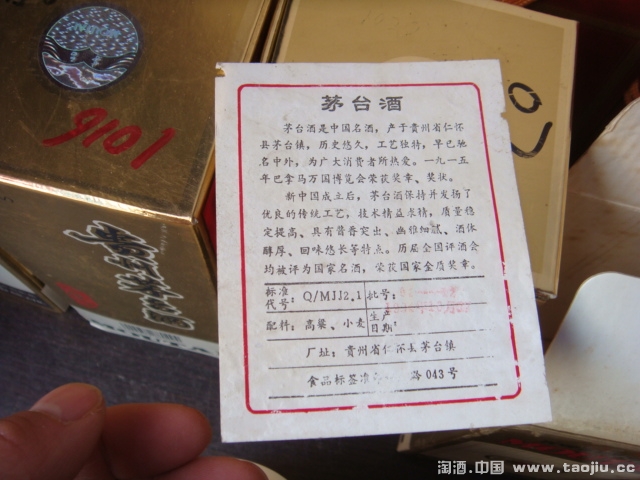 9101
07
茅台酒
茅台酒是中国名酒，产于贵州省仁怀
县茅台镇，历史悠久，工艺独特，早已驰
名中外，为广大消费者所热爱。一九一五
年巴拿马万国博览会荣获奖章、奖状。
新中国成立后，茅台酒保持并发扬了
优良的传统工艺，技术精益求精，质量稳
定提高、具有酱香突出、幽雅细腻、酒体
醇厚、回味悠长等特点。历届全国评酒会
均被评为国家名酒，荣获国家金质奖章。
标准代号：Q/MJJ2.1 批号：
配料：高粱、小麦 生产日期：
厂址：贵州省仁怀县茅台镇
食品标签准 043号
淘酒.中国 www.taojiu.cc